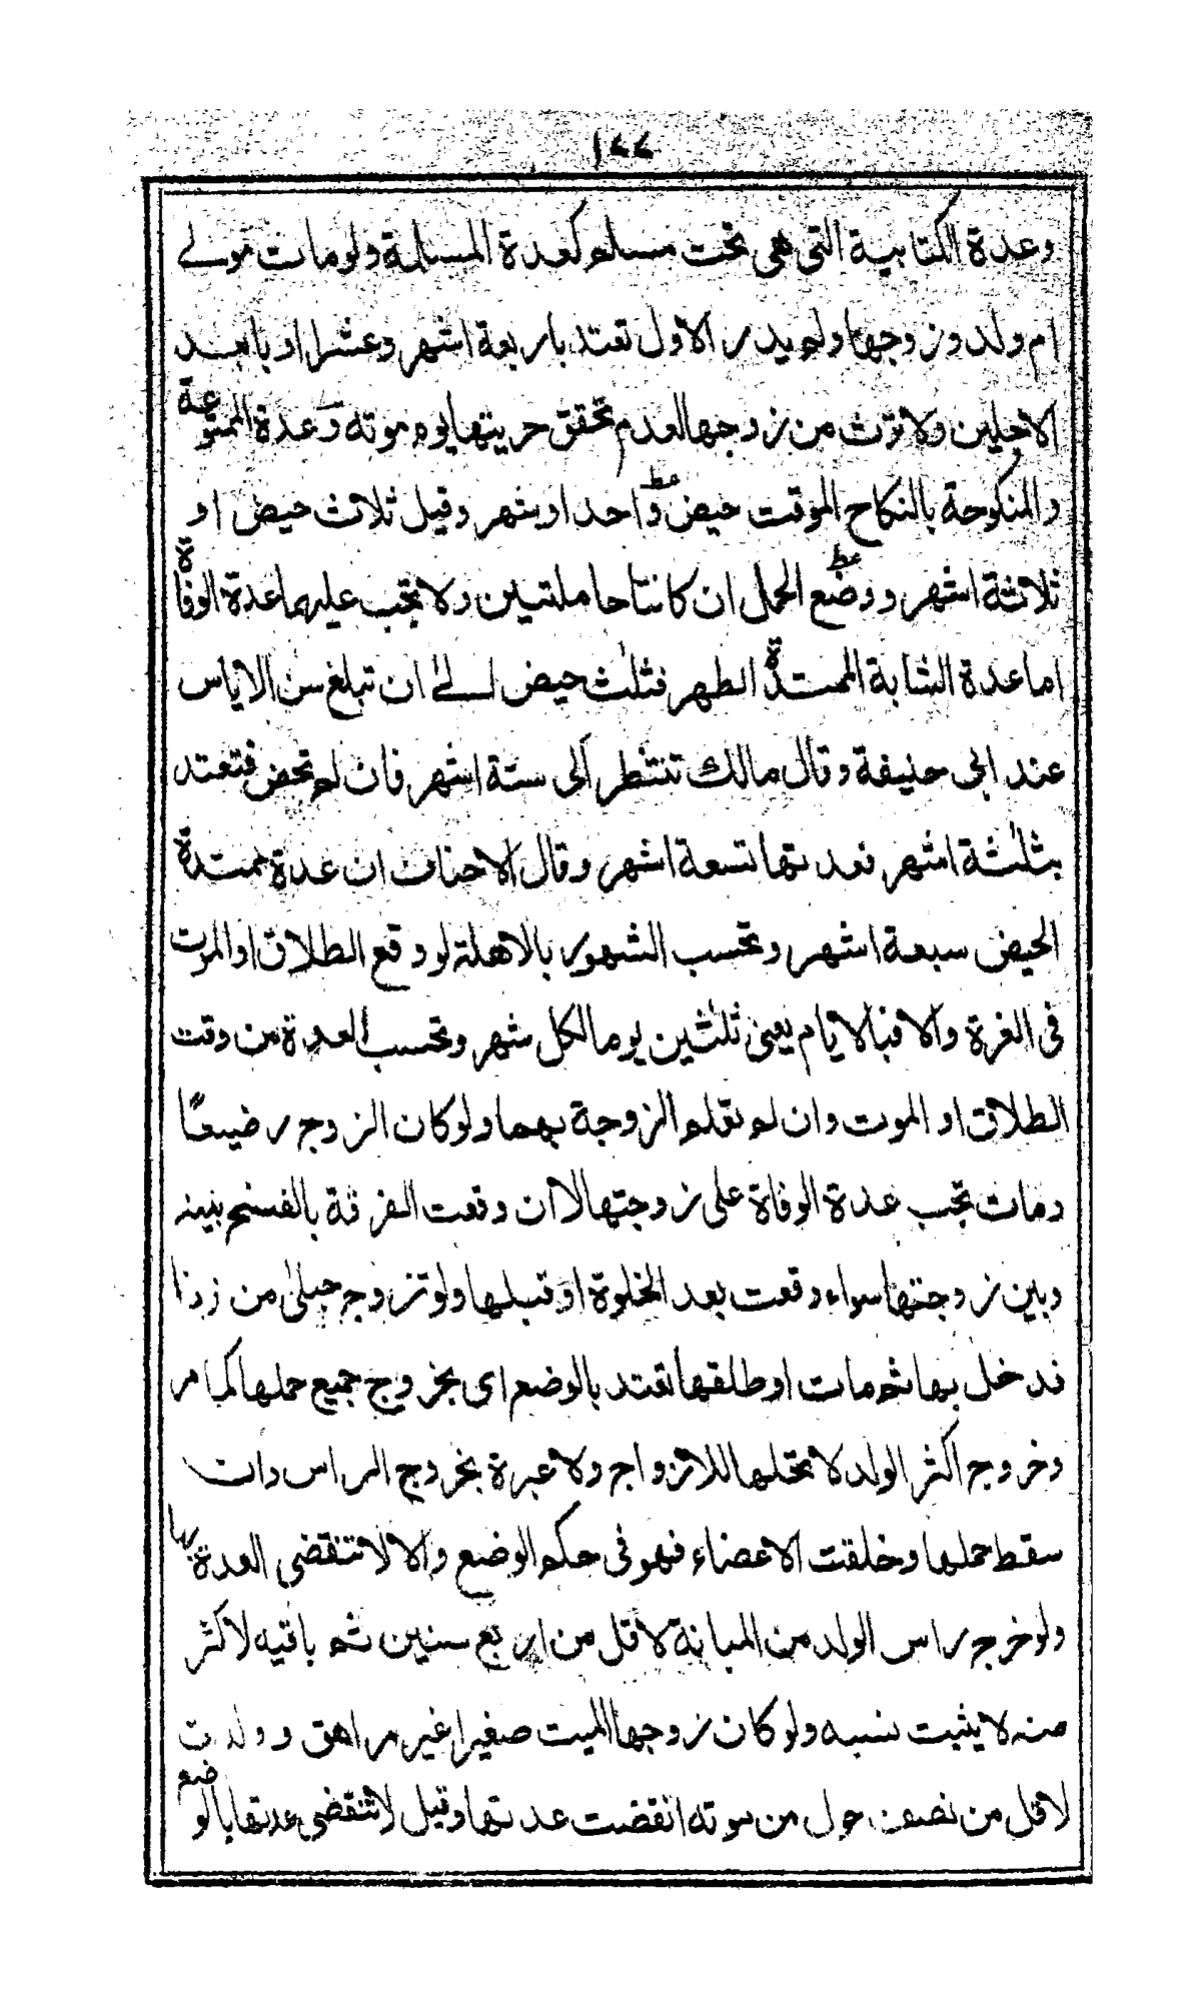 ١٤٤
وعدة الكتابية التى هى تحت مسلم كعدة المسلمة ولو مات مولے
ام ولد وزوجها ولم يدر الاول تعتد باربعة اشهر وعشرا او بابعد
الاجلين ولا ترث من زوجها لعدم تحقق حريتها يوم موته وعدة الممتوعة
والمنكوحة بالنكاح الموقت حيض واحد او شهر وقيل ثلاث حيض او
ثلاثة اشهر ووضع الحمل ان كانتا حاملتين ولا تجب عليهما عدة الوفاة
اما عدة الشابة الممتدة الطهر فثلٰث حيض الے ان تبلغ سن الاياس
عند ابى حنيفة وقال مالك تنتظر الى ستة اشهر فان لم تحض فتعتد
بثلٰثة اشهر فعدتها تسعة اشهر وقال الاحناف ان عدة ممتدة
الحيض سبعة اشهر وتحسب الشهور بالاهلة لو وقع الطلاق او الموت
فى الغرة والا فبالايام يعنى ثلٰثين يوما لكل شهر وتحسب العدة من وقت
الطلاق او الموت وان لم تعلم الزوجة بهما ولو كان الزوج رضيعًا
ومات تجب عدة الوفاة على زوجتها لا ان وقعت الفرقة بالفسخ بينه
وبين زوجتها سواء وقعت بعد الخلوة او قبلها ولو تزوج حبلىٰ من زنا
فدخل بها ثم مات او طلقها تعتد بالوضع اى بخروج جميع حملها كما مر
وخروج اكثر الولد لا تحلها للازواج ولا عبرة بخروج الراس وان
سقط حملها وخلقت الاعضاء فهو فى حكم الوضع والا لا تنقضى العدة بها
ولو خرج راس الولد من المبانة لاقل من اربع سنين ثم باقيه لاكثر
منه لا يثبت نسبه ولو كان زوجها الميت صغيرا غير مراهق وولدت
لاقل من نصف حول من موته انقضت عدتها وقيل لا تنقضى عدتها بالوضع